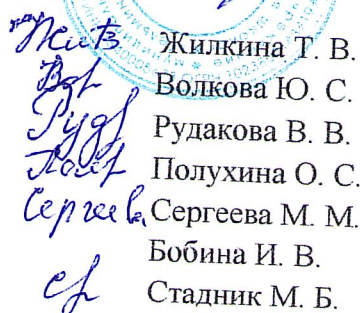 Жилкина Т. В.
Волкова Ю. С.
Рудакова В. В.
Полухина О. С.
Сергеева Сергеева М. М.
Бобина И. В.
Стадник М. Б.